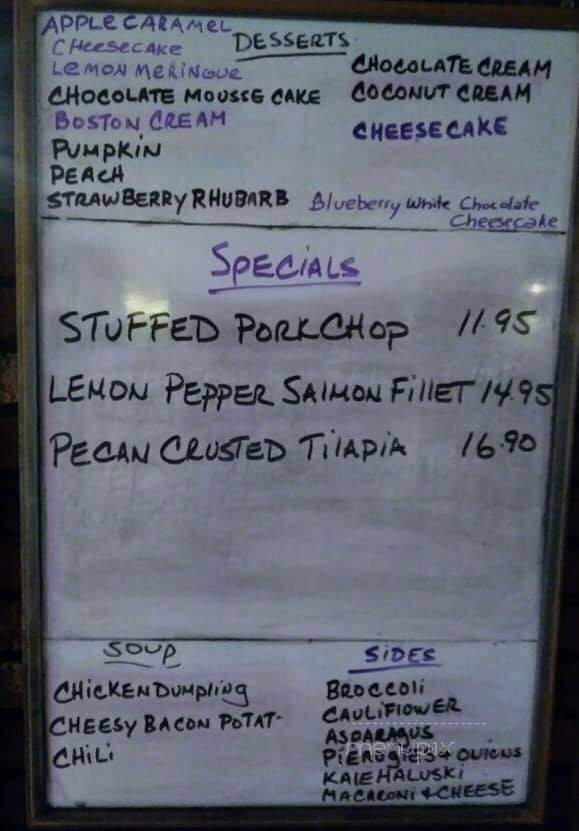 DESSERTS
APPLE CARAMEL
CHEESECAKE
LEMON MERINGUE
CHOCOLATE MOUSSE CAKE
BOSTON CREAM
PUMPKIN
PEACH
STRAWBERRY RHUBARB
CHOCOLATE CREAM
COCONUT CREAM
CHEESECAKE
Blueberry White Chocolate
Cheesecake
SPECIALS
STUFFED PORKCHOP 11.95
LEMON PEPPER SALMON FILLET 14.95
PECAN CRUSTED TILAPIA 16.90
SOUP
CHICKEN DUMPLING
CHEESY BACON POTAT-
CHILI
SIDES
BROCCOLI
CAULIFLOWER
ASPARAGUS
PIERUGIES + ONIONS
KALE HALUSKI
MACARONI + CHEESE
menupix